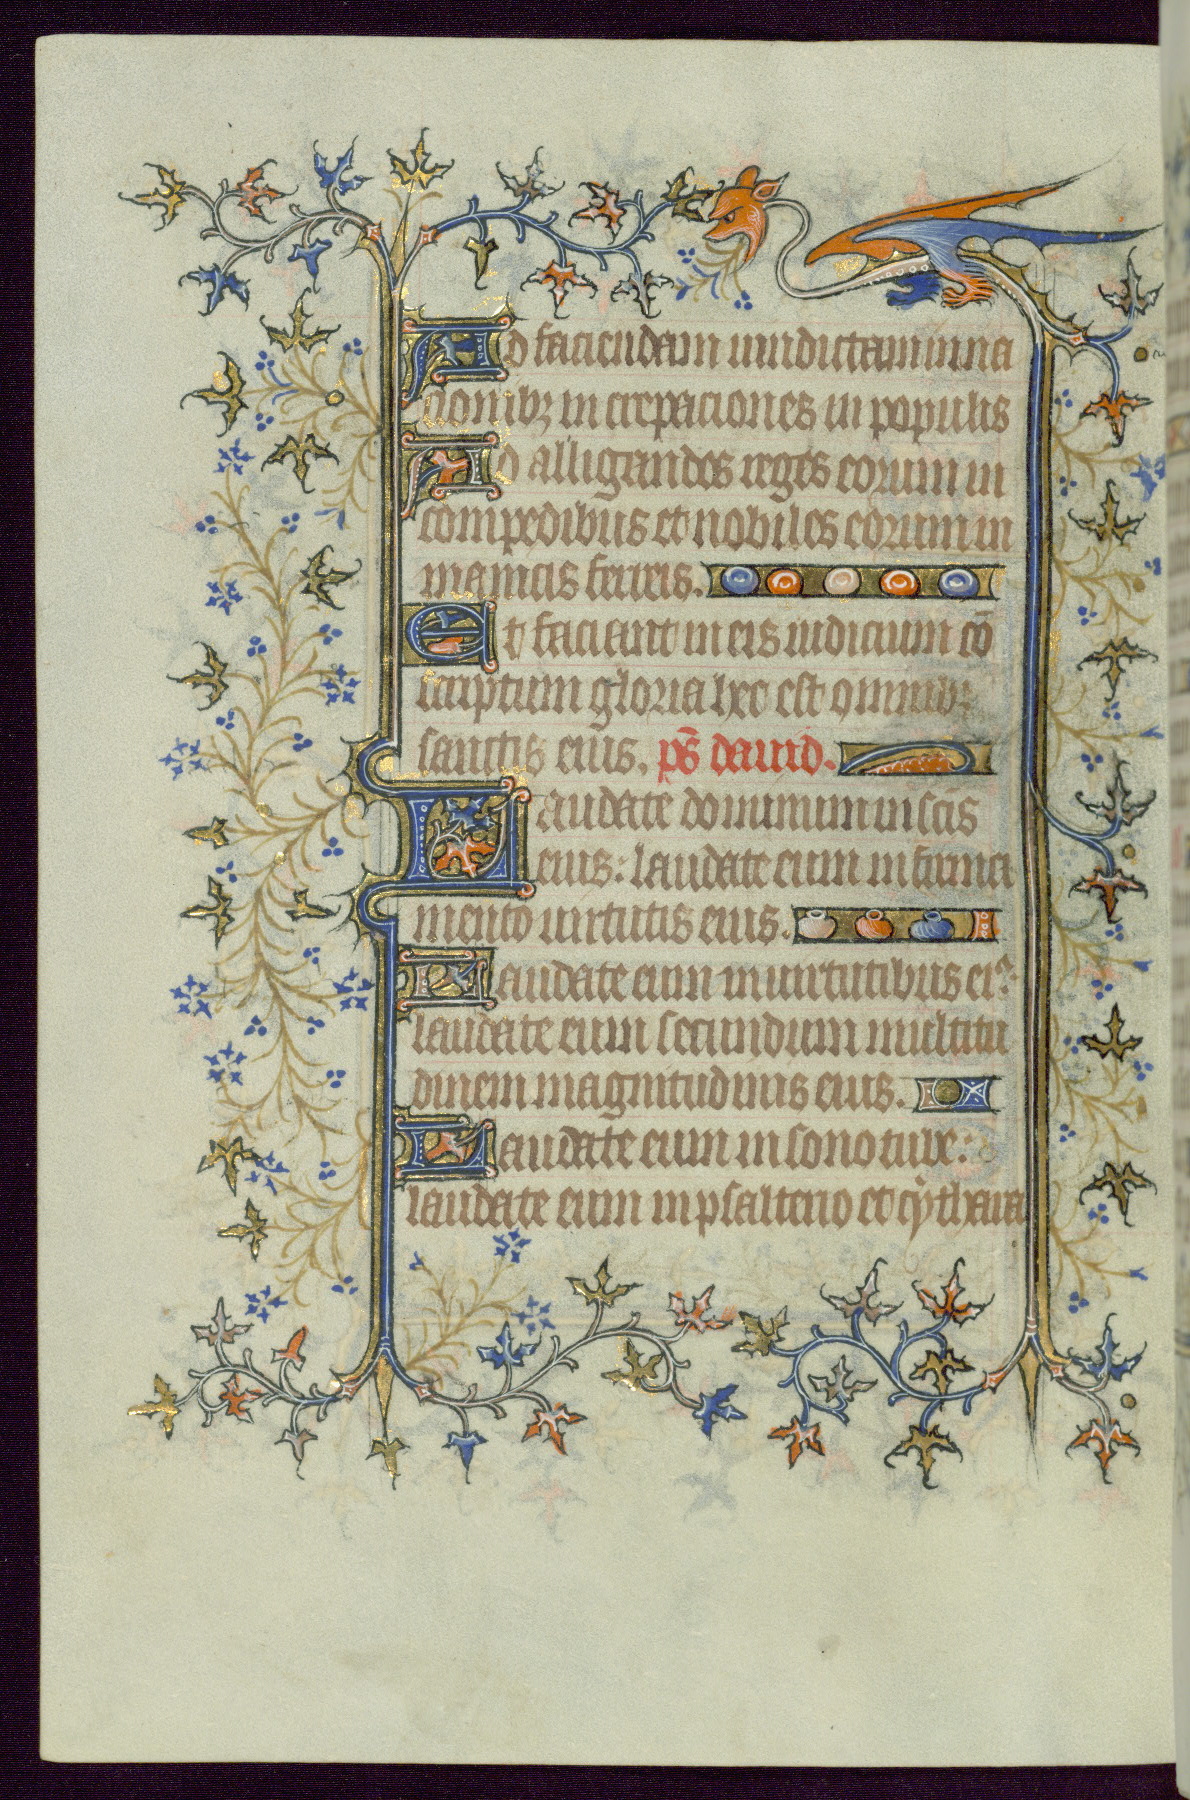 Ad faciendam uindictam in na
cionibꝫ in crepaciones in populis
Ad alligandos reges eorum in
compedibus et nobiles eorum in
manicis ferreis.
Et faciant in eis iudicium cō
scriptum gloria hec est omnibꝫ
sanctis eius. ps̄ dauid.
Laudate dominum in scis
eius: laudate eum in firma
mento uirtutis eius.
Laudate eum in uirtutibus ei᷒:
laudate eum secundum multitu
dinem magnitudinis eius.
Laudate eum in sono tube:
laudate eum in psalterio et cythara